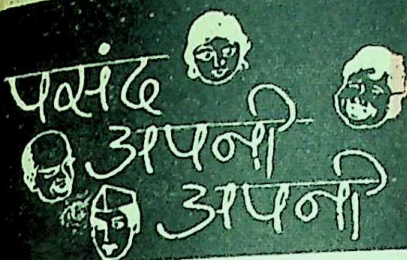 पसंद
अपनी
अपनी